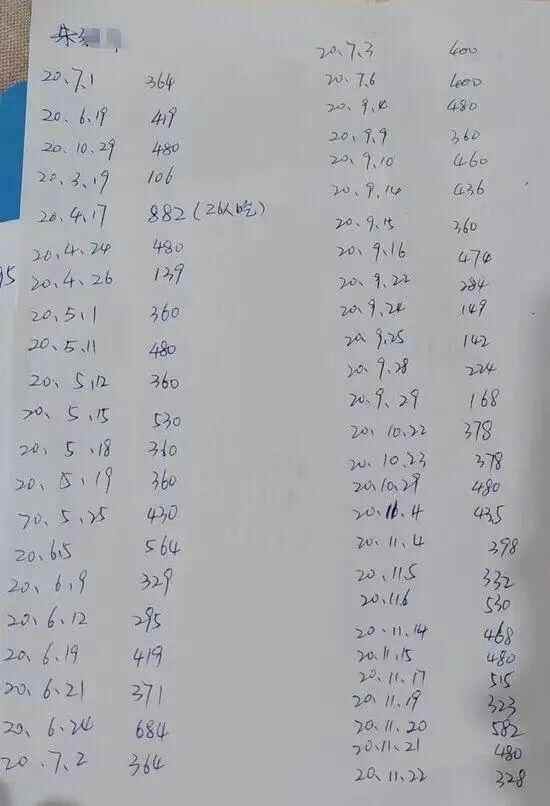 朱
20、7、1 364
20、6、19 419
20、10、29 480
20、3、19 106
20、4、17 882(26人吃)
20、4、24 480
95
20、4、26 139
20、5、1 360
20、5、11 480
20、5、12 360
20、5、15 530
20、5、18 360
20、5、19 360
20、5、25 430
20、6、5 564
20、6、9 329
20、6、12 295
20、6、19 419
20、6、21 371
20、6、24 684
20、7、2 364
20、7、3 400
20、7、6 600
20、9、4 480
20、9、9 360
20、9、10 460
20、9、14 436
20、9、15 360
20、9、16 474
20、9、22 284
20、9、24 149
20、9、25 142
20、9、28 224
20、9、29 168
20、10、22 378
20、10、23 378
20、10、29 480
20、11、4 435
20、11、4 398
20、11、5 332
20、11、6 530
20、11、14 468
20、11、15 480
20、11、17 515
20、11、19 323
20、11、20 582
20、11、21 480
20、11、22 328